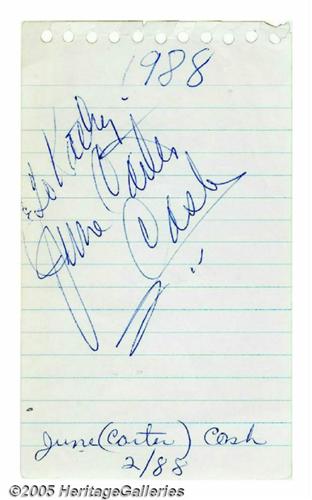 1988
To Kathy
June Carter
Cash
June (Carter) Cash
2/88
©2005 HeritageGalleries